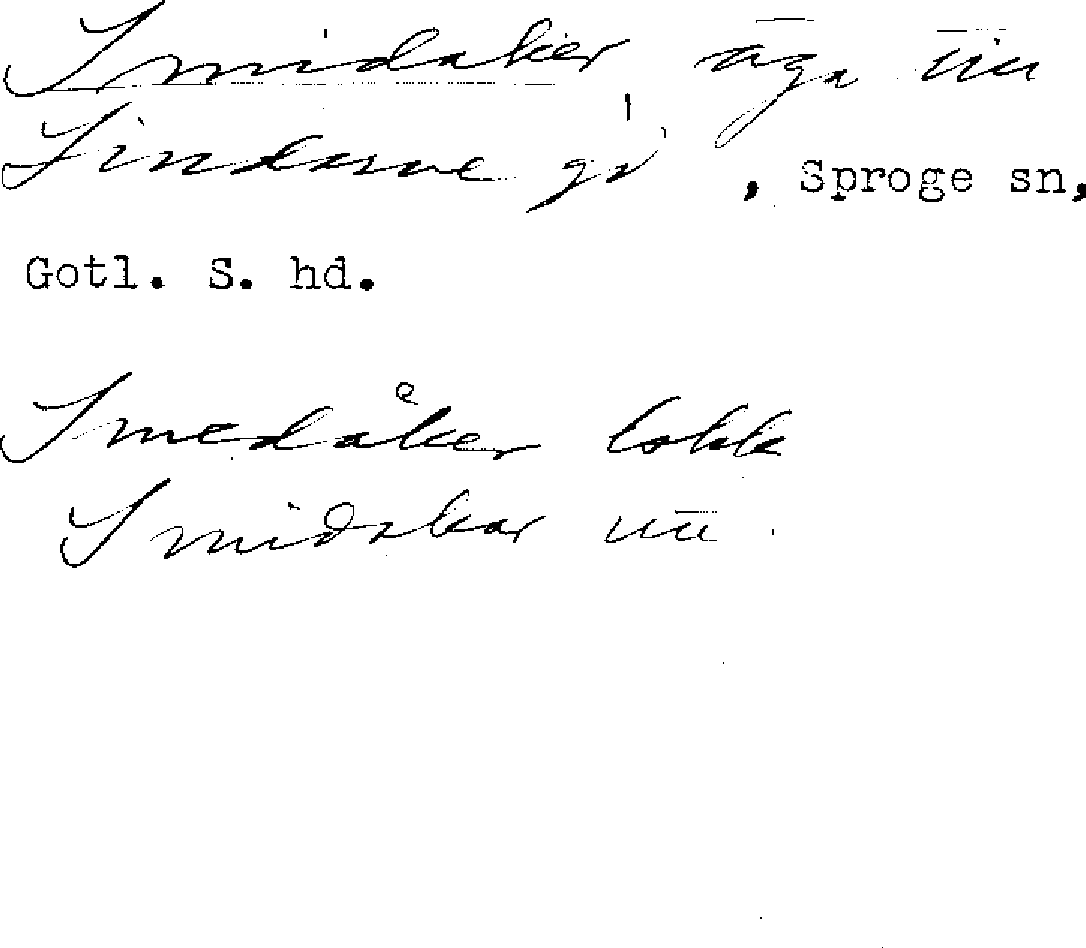 Smidaker, äga nu
Sindarve gd, Sproge sn,
Gotl. S. hd.
Smedåker lokk
Smidakar nu.